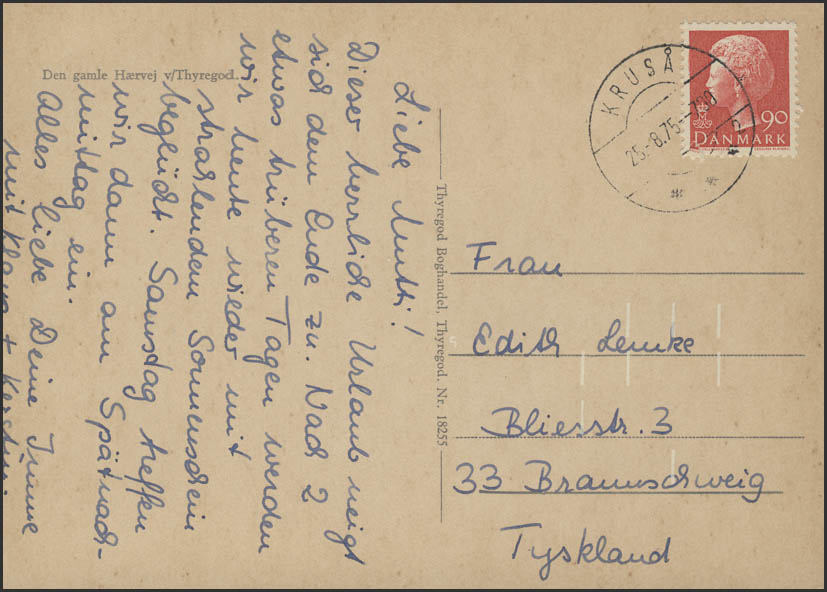 Den gamle Hærvej v/Thyregod.
Liebe Mutti!
Dieser herrliche Urlaub neigt
sich dem Ende zu. Nach 2
etwas trüberen Tagen werden
wir heute wieder mit
strahlendem Sonnenschein
beglückt. Samstag treffen
wir dann am Spätnach-
mittag ein.
Alles liebe Deine Imme
mit Klaus + Kerstin.
Thyregod Boghandel, Thyregod. Nr. 18255
KRUSÅ
25.-8.75.-
90
DANMARK
Frau
Edith Lemke
Bliesstr. 3
33 Braunschweig
Tyskland